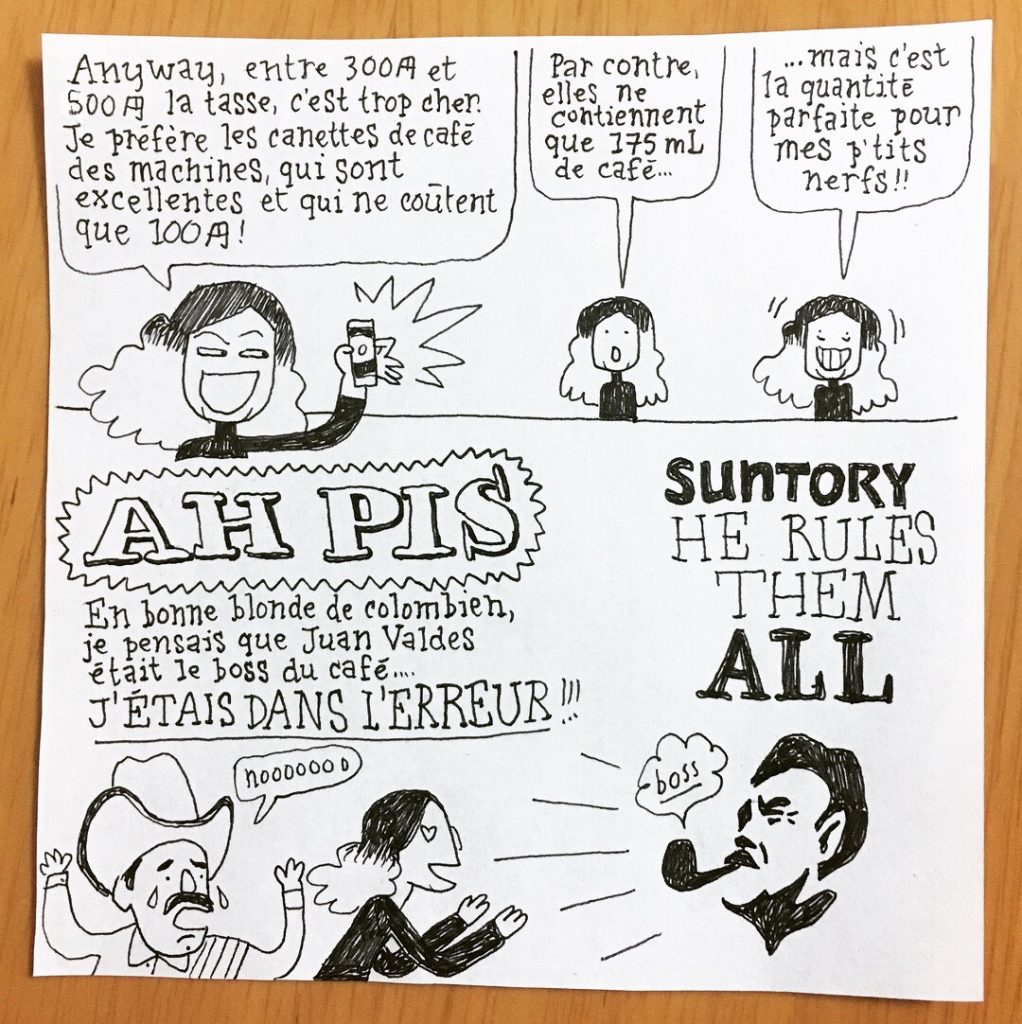 Anyway, entre 300円 et
500円 la tasse, c'est trop cher.
Je préfère les canettes de café
des machines, qui sont
excellentes et qui ne coûtent
que 100円!
Par contre,
elles ne
contiennent
que 175 mL
de café...
...mais c'est
la quantité
parfaite pour
mes p'tits
nerfs!!
AH PIS
En bonne blonde de colombien,
je pensais que Juan Valdes
était le boss du café....
J'ÉTAIS DANS L'ERREUR!!!
SUNTORY
HE RULES
THEM
ALL
nooooooo
boss